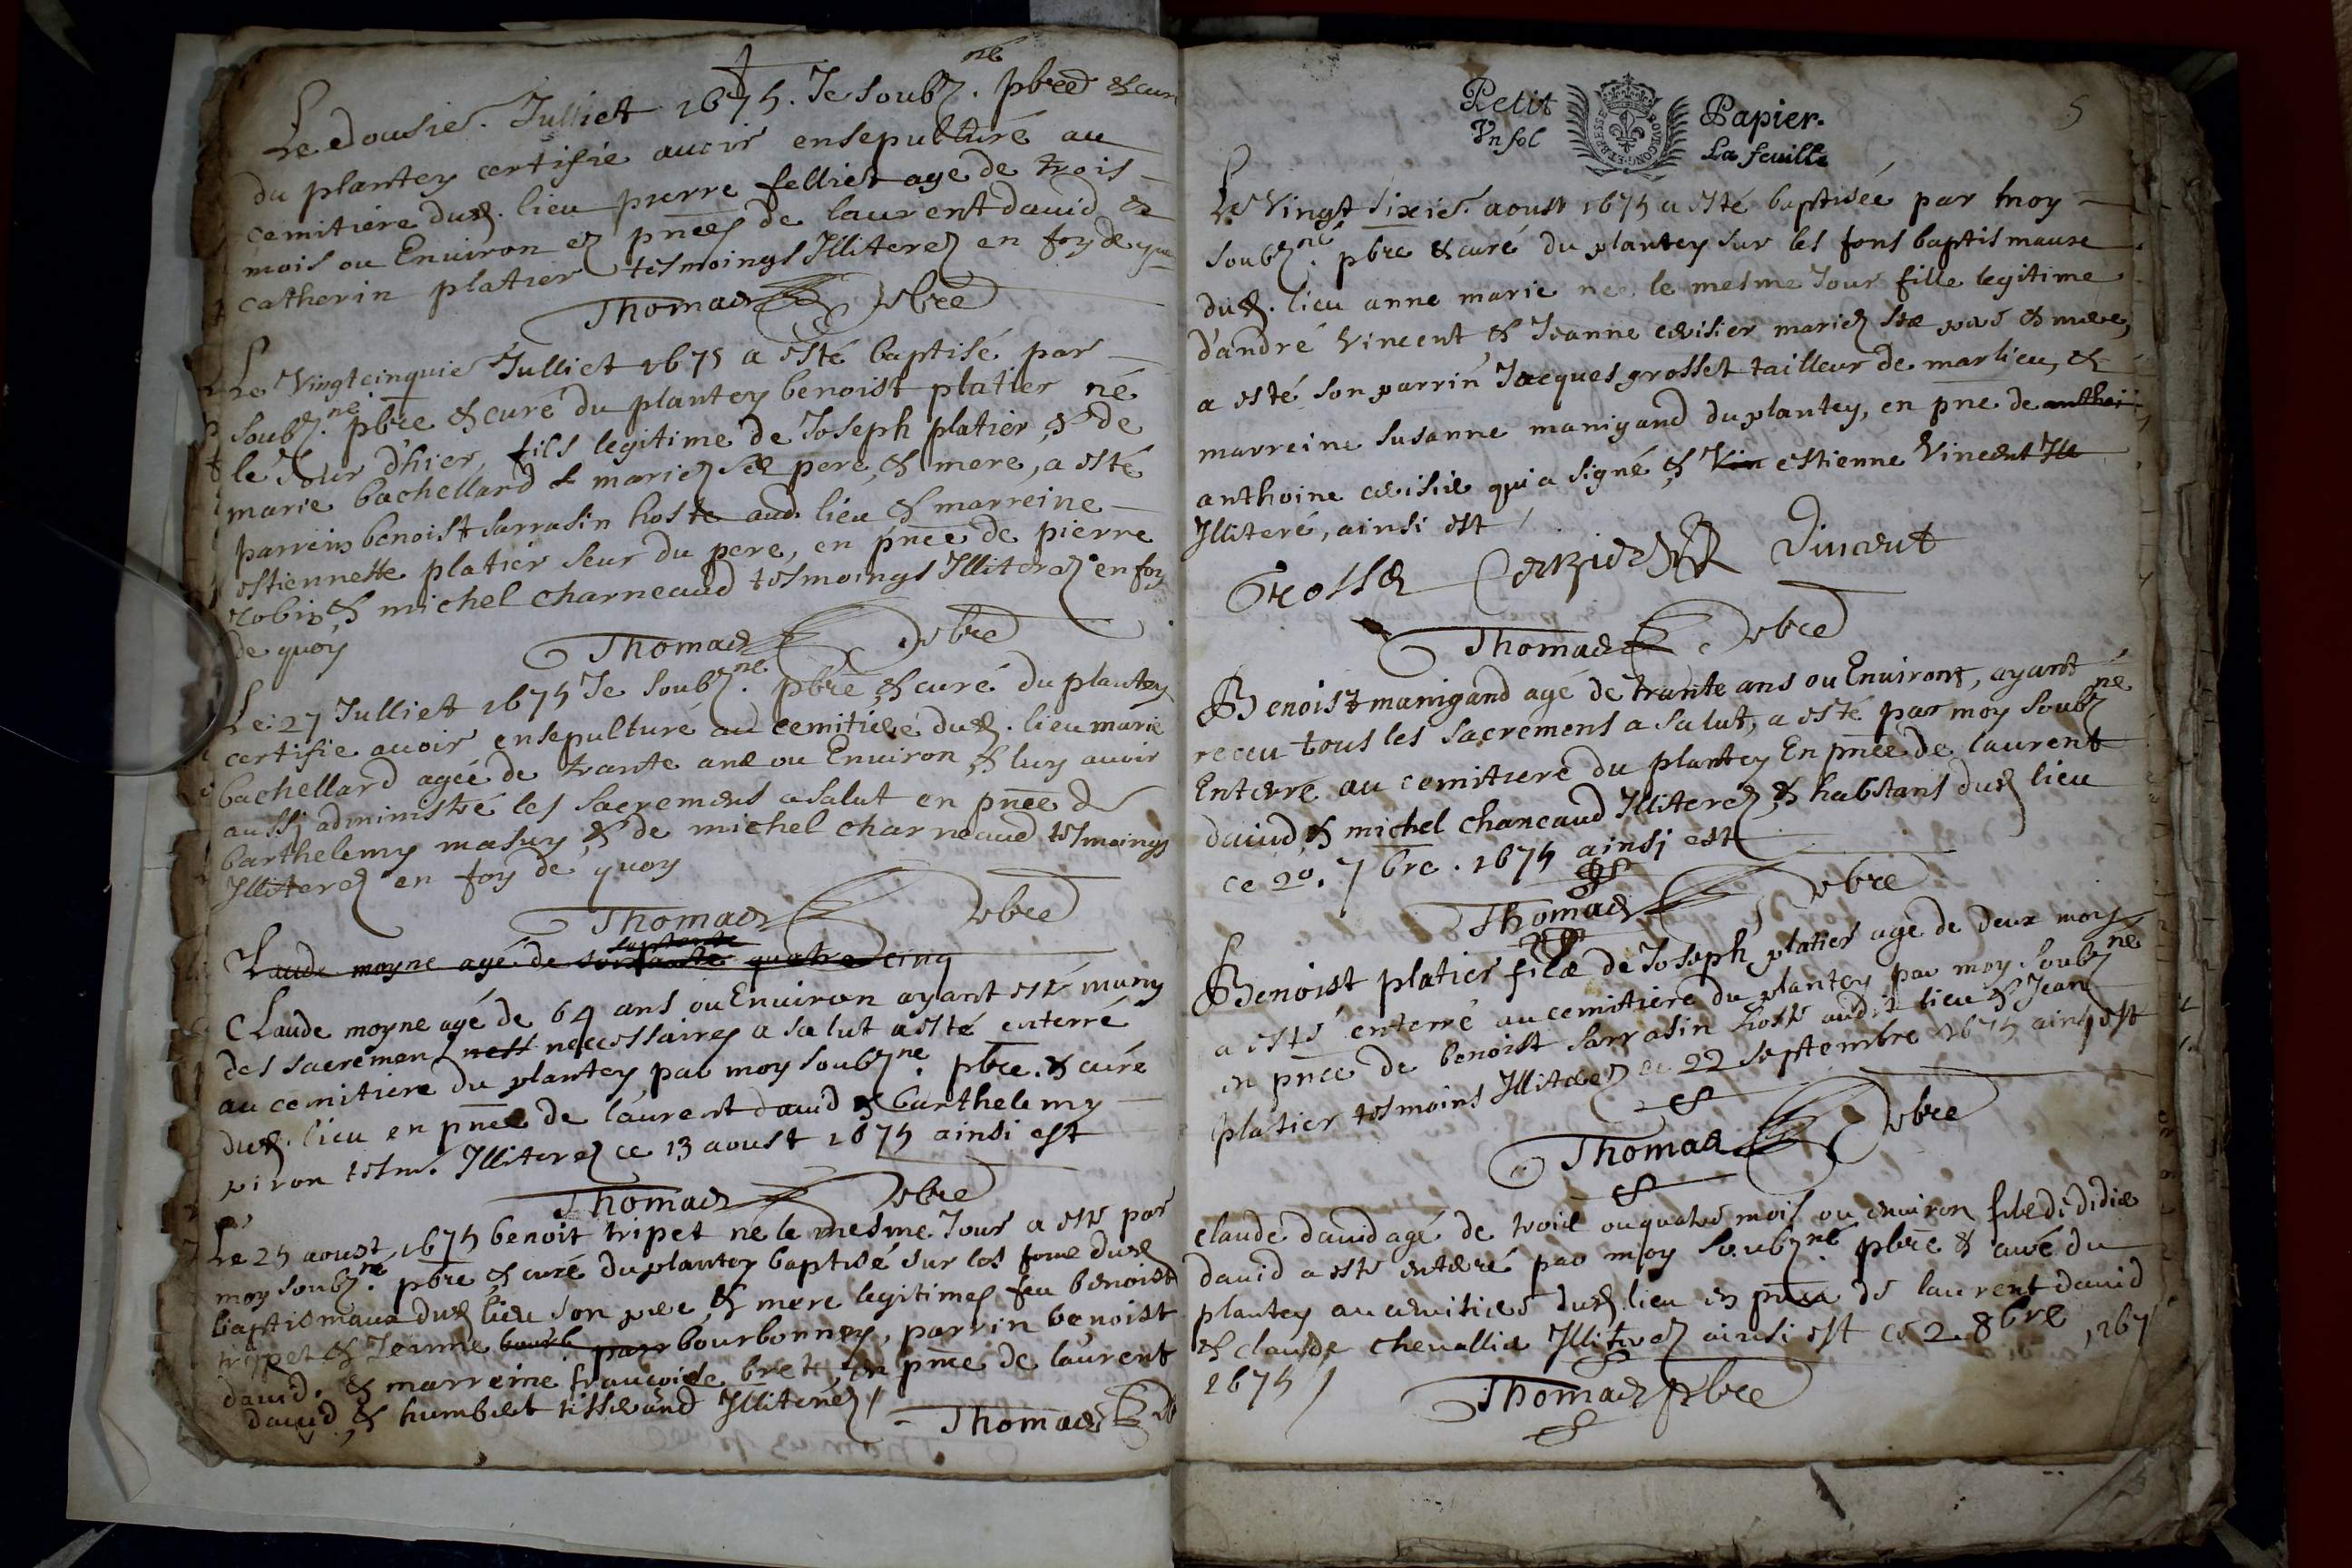 Le dousie. Julliet 1675. Je soubz.né pbre & curé
du plantey certifie auoir ensepulturé au
cemitiere dud. lieu pierre felliet agé de trois
mois ou Enuiron ez pnces de laurent dauid &
catherin platier tesmoings Illiterez en foy de quoy
Thomas pbre
Le Vingtcinquie Julliet 1675 a esté baptisé par
soubz.né pbre & curé du plantey benoist platier né
le Jour d'hier, fils legitime de Joseph platier, & de
marie bachellard mariez ses pere, & mere, a esté
parrein benoist sarrasin hoste aud. lieu & marreine
estiennette platier seur du pere, en pnce de pierre
robin & michel charneaud tesmoings Illiterez en foy
de quoy
Thomas pbre
Le 27 Julliet 1675 Je soubz.né pbre & curé du plantey
certifie auoir ensepulturé au cemitiere dud. lieu marie
bachellard agée de trante ans ou Enuiron & luy auoir
aussi administré les sacremens a salut en pnce de
barthelemy masuy & de michel charneaud tesmoings
Illiterez en foy de quoy
Thomas pbre
Laude moyne agé de soixante septante quatre cinq
CLaude moyne agé de 64 ans ou Enuiron ayant esté muny
des sacremens ness necessaires a salut a esté enterré
au cemitiere du plantey par moy soubz.né pbre. & curé
dud. lieu en pnce de laurent dauid & barthelemy
piron tesm. Illiterez ce 13 aoust 1675 ainsi est
Thomas pbre
Le 25 aoust 1675 benoit tripet né le mesme Jour a esté par
moy soubz.né pbre & curé du plantey baptisé sur les fons dud
baptismaux dud. lieu son pere & mere legitimes feu benoist
tripet & Jeanne bourb parr bourbonney, parrin benoist
dauid. & marreine francoise bret, en pnce de laurent
dauid, & humbert tisserand Illiterez /
Thomas pb
5
Petit Papier.
Vn sol La feuille
BOVRGONG·ET·BRESSE
Le Vingt sixie. aoust 1675 a esté baptisée par moy
soubz.né pbre & curé du plantey sur les fons baptismaux
dud. lieu anne marie née le mesme Jour fille legitime
d'andré Vincent & Jeanne cerisier mariez ses pere & mere,
a esté son parrin Jacques grosset tailleur de marlieu, &
marreine susanne manigand du plantey, en pne de anthoi
anthoine cerisier qui a signé & Vin estienne Vincent Ill
Illiteré, ainsi est /
Grosset Cerizier Vincent
Thomas pbre
Benoist manigand agé de trante ans ou Enuiront, ayant
receu tous les sacremens a salut, a esté par moy soubzné
Enterré au cemitiere du plantey En pnce de laurent
dauid, & michel chaneaud Illiterez & habitans dud lieu
ce 20. 7bre. 1675 ainsi est
Thomas pbre
Benoist platier fils de Joseph platier agé de deux moys
a esté enterré au cemitiere du plantey par moy soubzné
en pnce de benoist sarrasin hoste audit lieu & Jean
platier tesmoins Illiterez ce 22 septembre 1675 ainsy est
Thomas pbre
claude dauid agé de trois ou quatre mois ou enuiron fils de didier
dauid a esté enterré par moy soubzné pbre & curé du
plantey au cemitiere dud. lieu en pnce de laurent dauid
& claude cheuallier Illiterez ainsi est ce 2. 8bre 167
1675 /
Thomas pbre